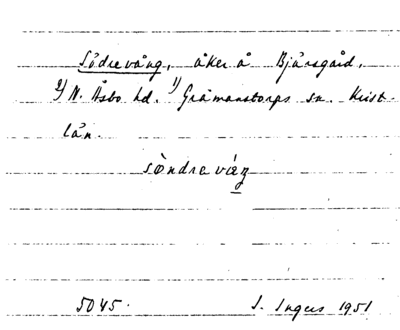 Södrevång, åker å Bjärsgård,
2) N. Åsbo hd. 1) Gråmanstorps sn. Krist.
län.
sȯ̀ndrevæŋ
5045. I. Ingers 1951